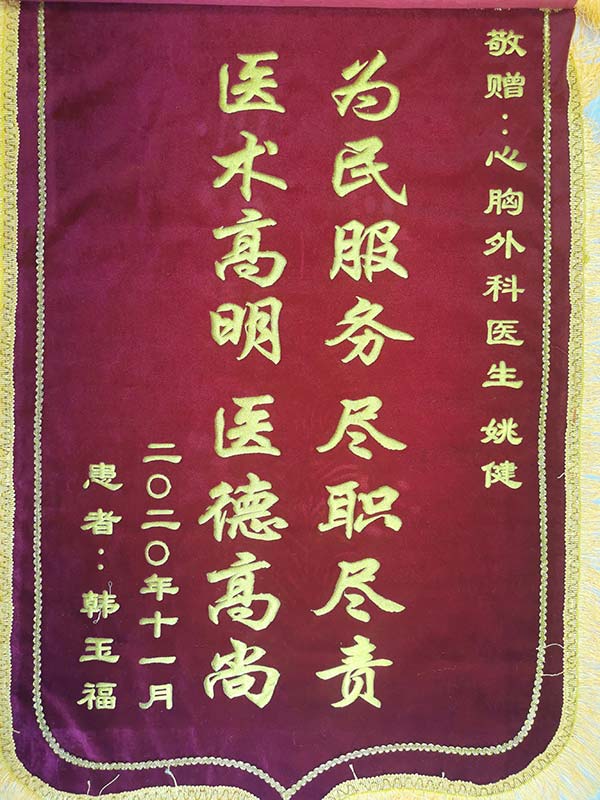 敬赠：心胸外科医生 姚健
为民服务 尽职尽责
医术高明 医德高尚
二〇二〇年十一月
患者：韩玉福